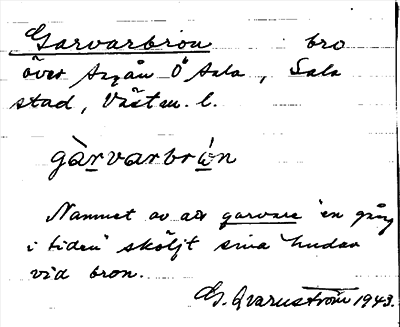 Garvarbron bro
över Arån Ö Sala, Sala
stad, Västm. l.
gàrvarbrón
Namnet av att garvare "en gång
i tiden" sköljt sina hudar
vid bron.
G. Qvarnström 1943.